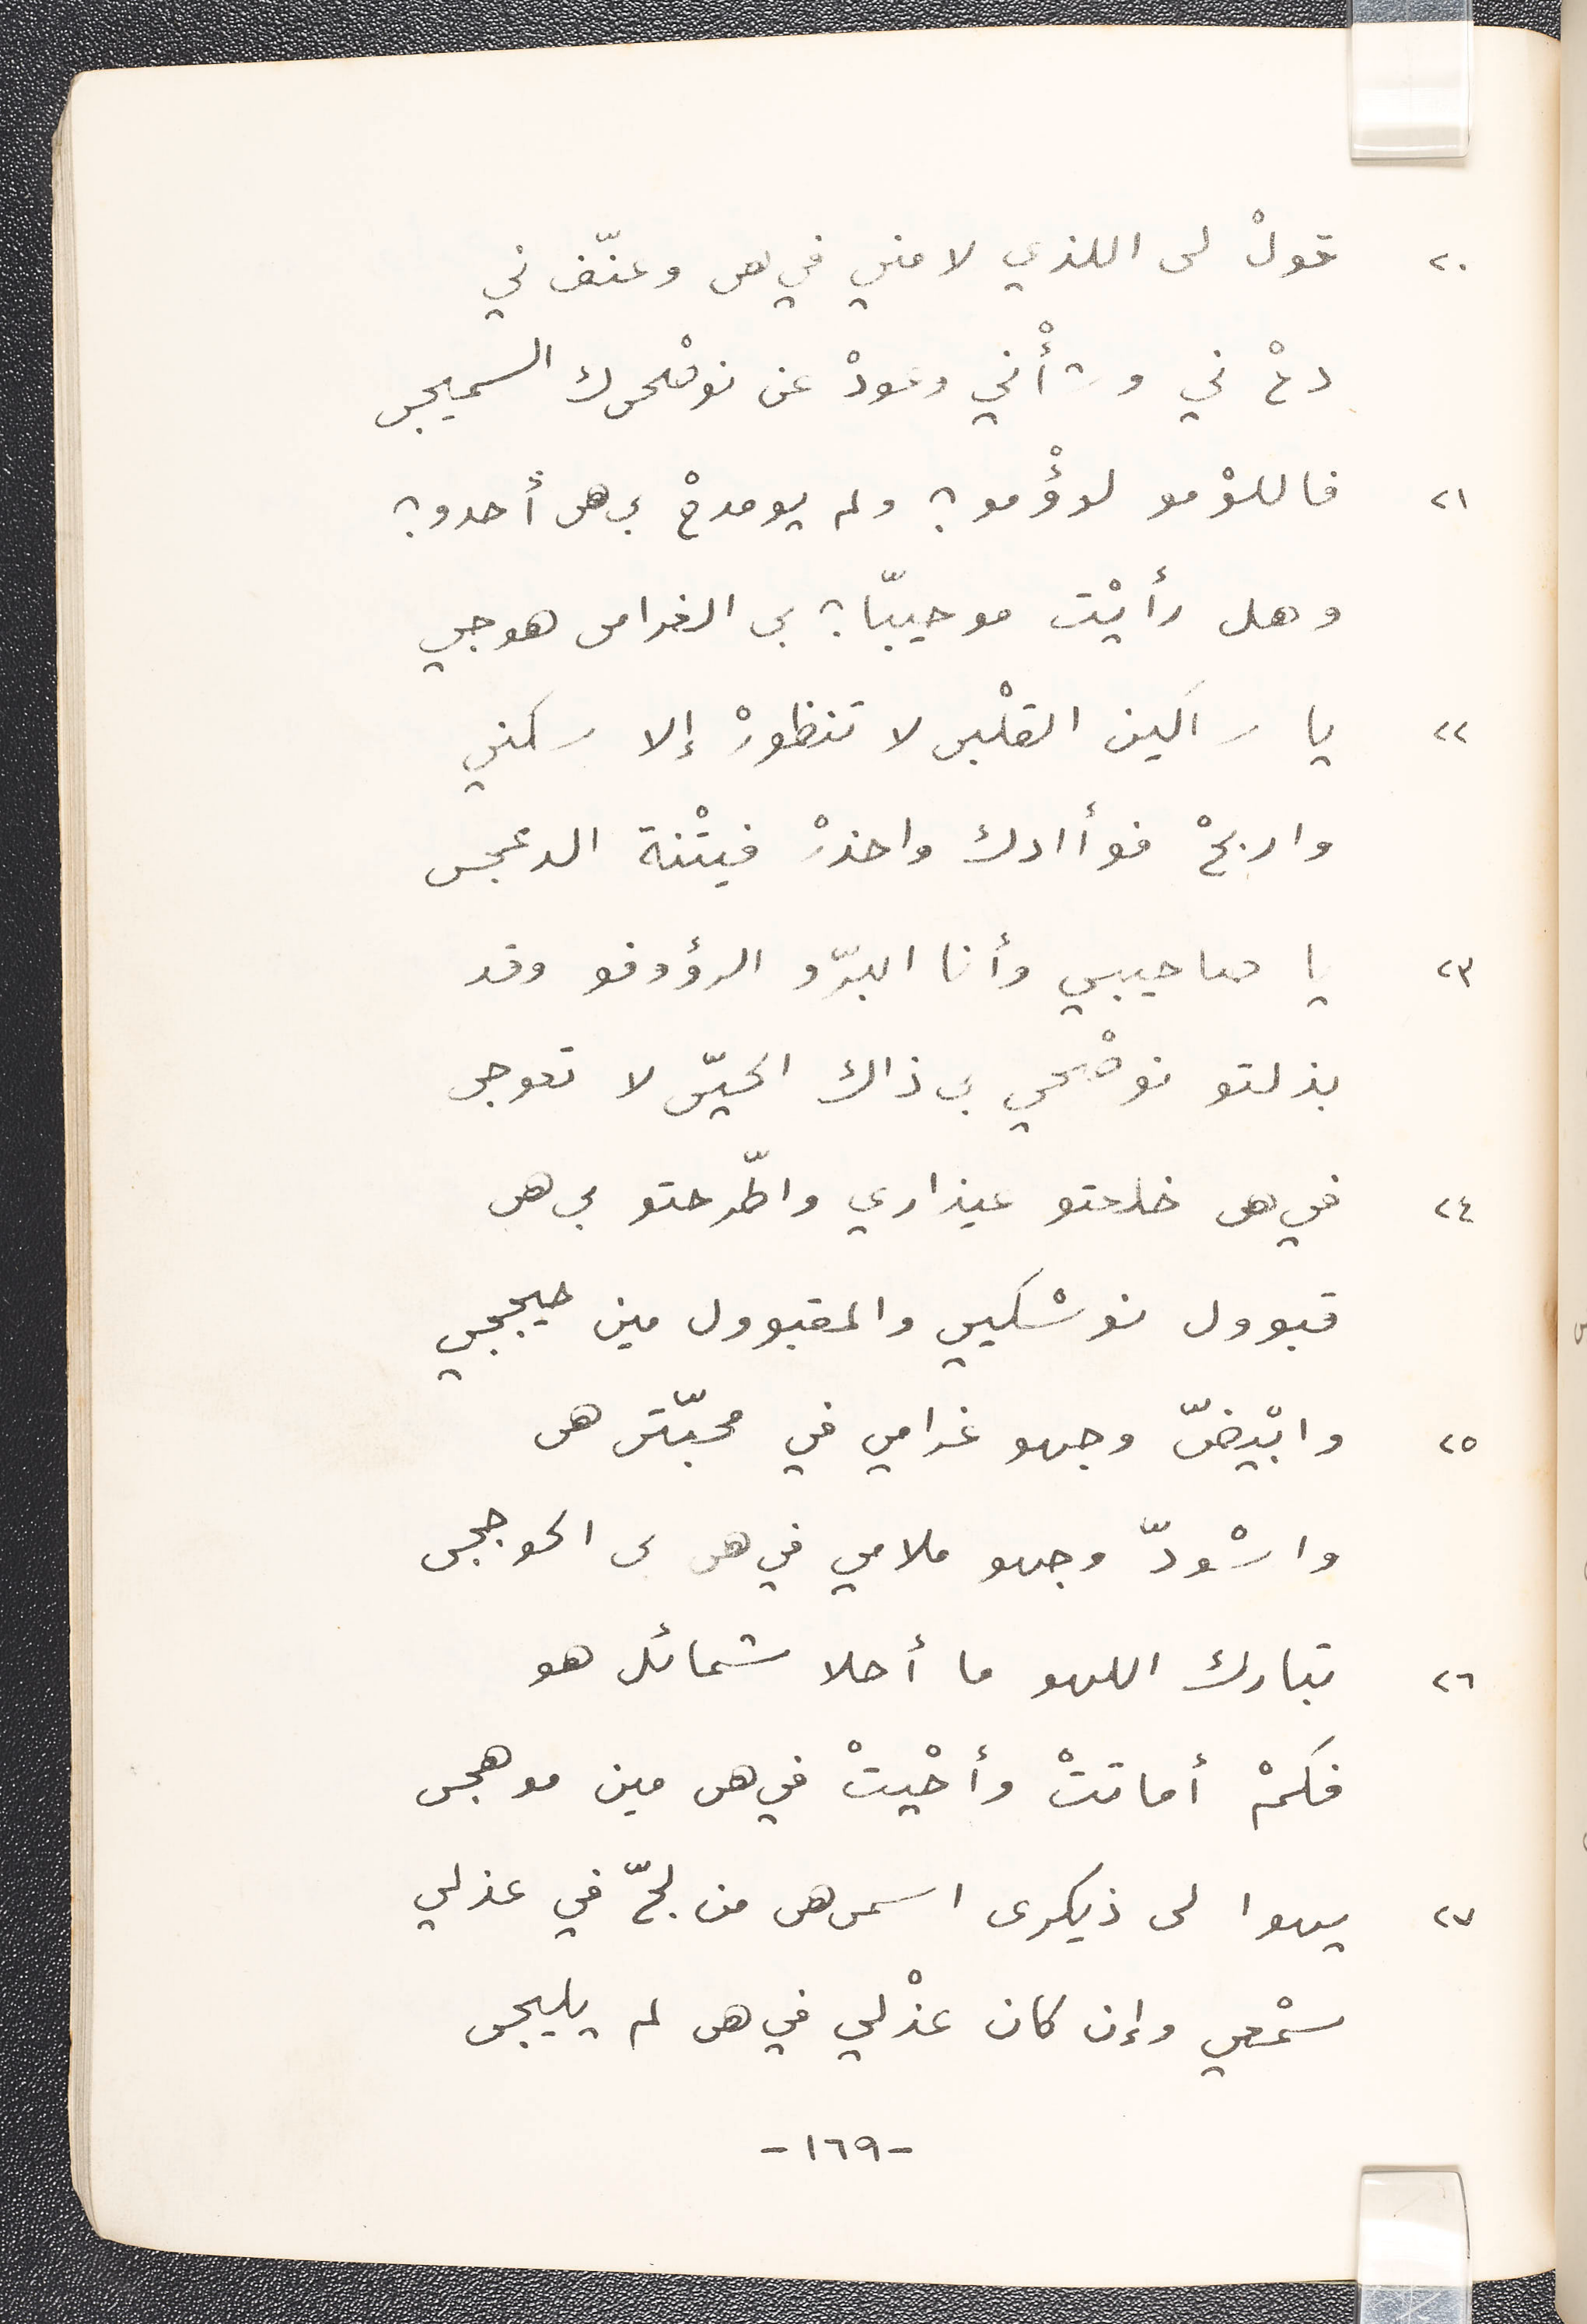 ٢٠ قولْ لى اللذي لامني في هى وعنّف ني
دعْ ني وشأْني وعودْ عن نوصْحىك السميجى
٢١ فاللوْمو لوؤْمو؟ ولم يومدحْ بى هى أحدو؟
وهل رأيْت موحيبّا؟ بى الغرامى هوجي
٢٢ يا ساكين القلْبى لا تنظورْ إلا سكني
واربحْ فوأادك واحذرْ فيتْنة الدعجى
٢٣ يا صاحيبي وأنا البرّو الرؤوفو وقد
بذلتو نوصْحي بى ذاك الحيّى لا تعوجى
٢٤ في هى خلعتو عيذاري واطّرحتو بى هى
قبوول نوسْكيي والمقبوول مين حيججي
٢٥ وابْيضّ وجهو غرامي في محبّتى هى
واسْودّ وجهو ملامي في هى بى الحوججى
٢٦ تبارك اللهو ما أحلا شمائل هو
فكمْ أماتتْ وأحْيتْ في هى مين موهجى
٢٧ يهوا لى ذيكرى اسمى هى من لجّ في عذلي
سمْعي وإن كان عذْلي في هى لم يليجى
-١٦٩-